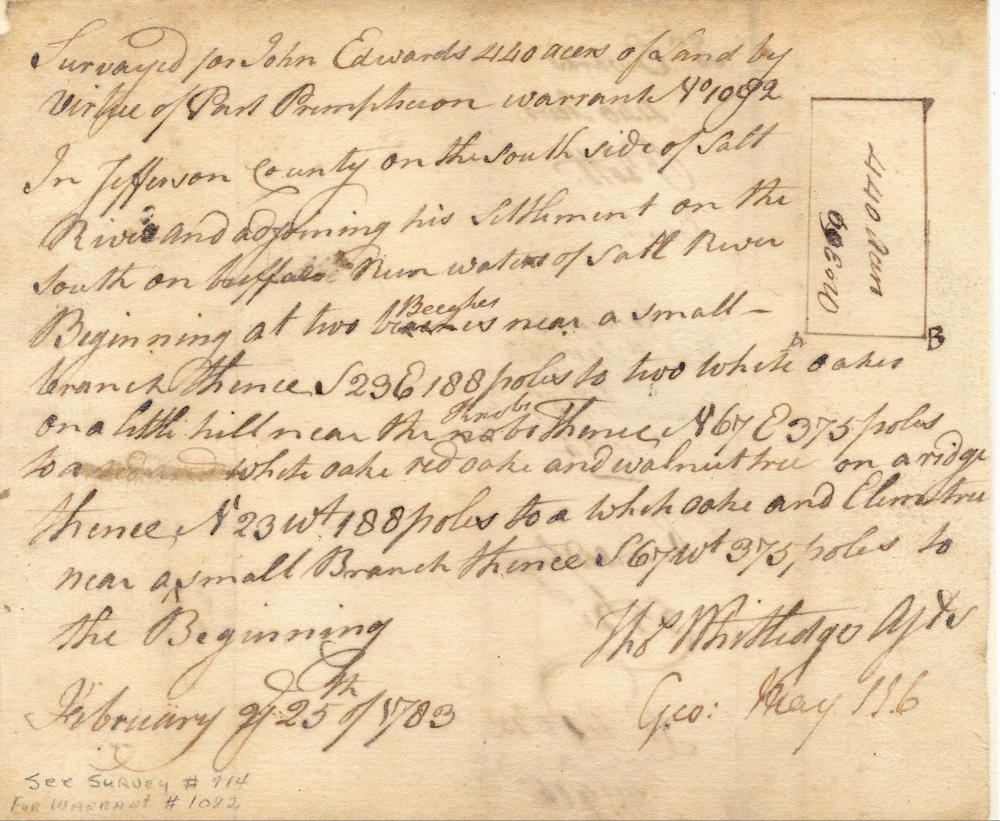 Survayed for John Edwards 440 acers of Land by
Virtue of Part Premption warrant No 1082
In Jefferson County on the south side of Salt
River and adjoining his Settlement on the
south on buffalo Run waters of Salt River
Beginning at two Beeches near a small –
branch Thence S 23 E 188 poles to two white oakes
on a little hill near the Knobs Thence N 67 E 375 poles
to a white oake red oake and walnut tree on a ridge
thence N 23 Wt 188 poles to a whit oake and Elem tree
near a small Branch thence S 67 Wt 375 poles to
the Beginning
Thos Whitledge
February ye 25th of 1783
Geo: May
440
A
B
See Survey # 914
For Warrant # 1082